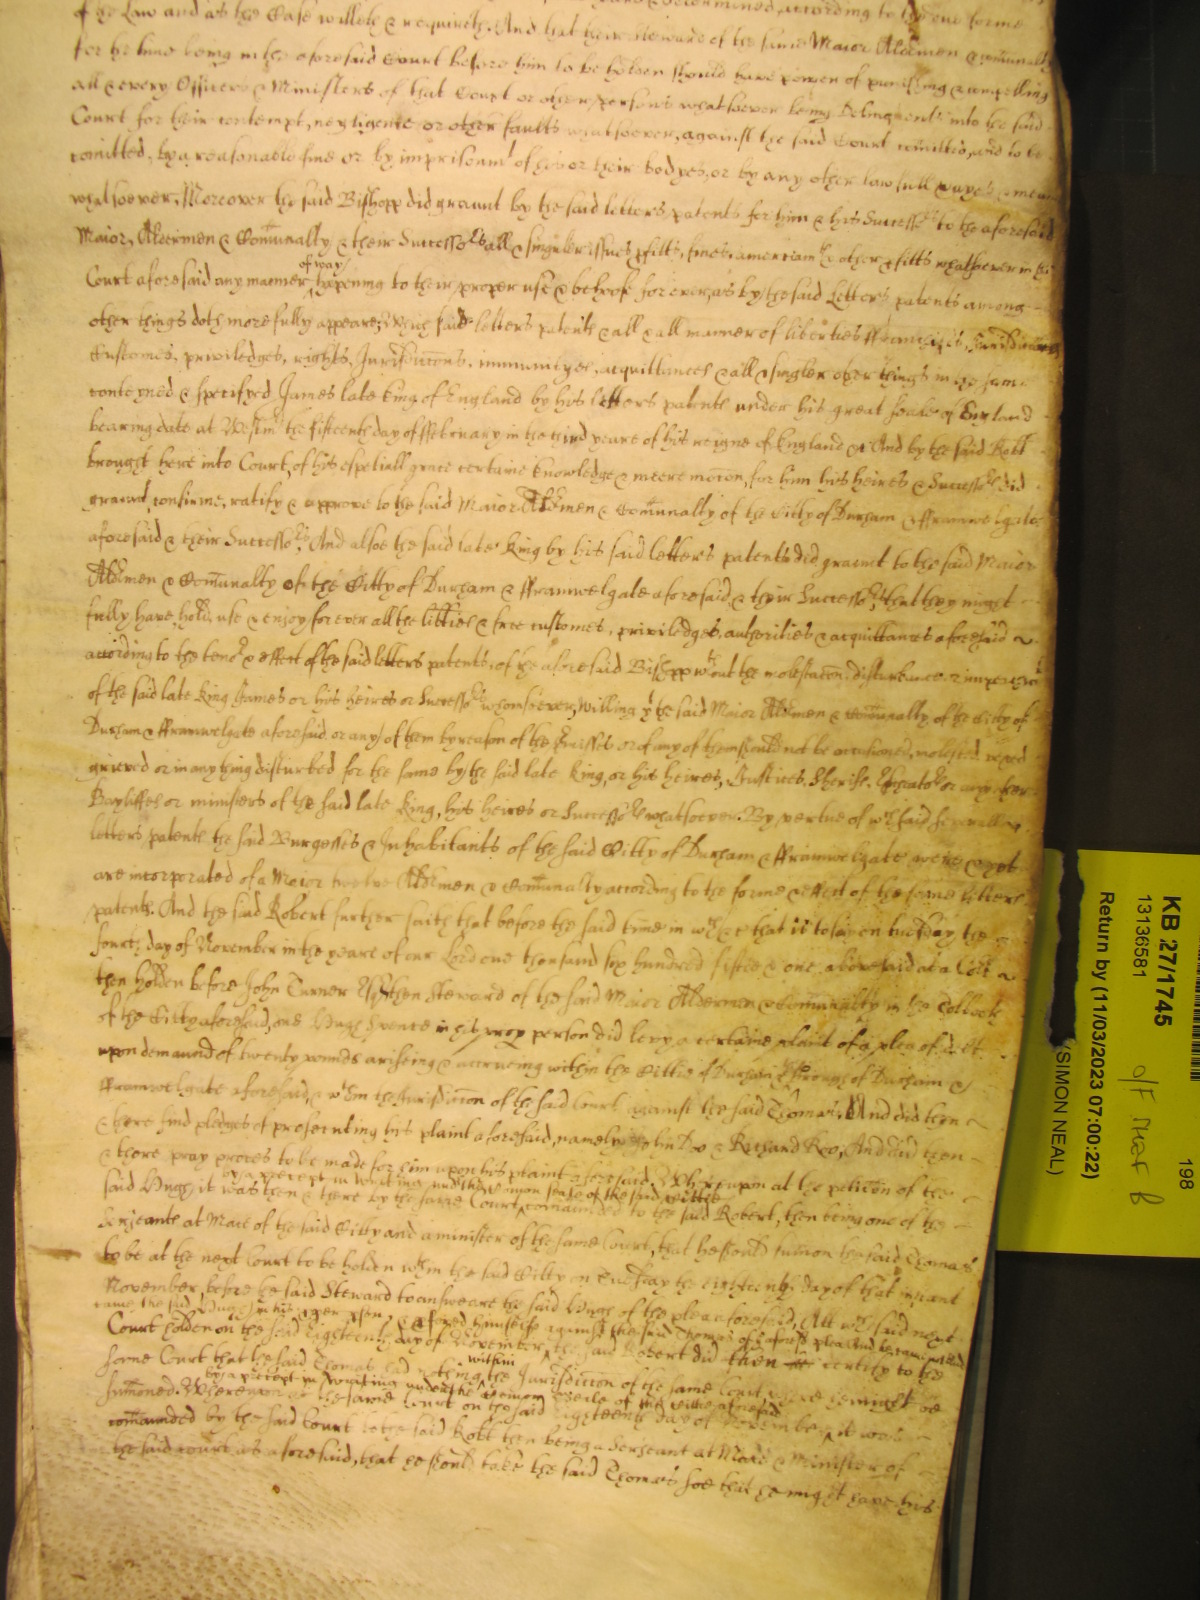 of the Law and as the Case willeth & requireth. And that their Steward of the same Maior Aldermen & Comunalty
for the time being in the aforesaid Court before him to be holden should have power of punishing & compelling
all & every Officers & Ministers of that Court or other persons whatsoever being Delinquents into the said
Court for their contempt, negligence or other faults whatsoever, against the said Court comitted, and to be
comitted, by a reasonable fine or by imprisonmt of his or their bodyes, or by any other lawfull wayes & meanes
whatsoever, Moreover the said Bishopp did graunt by the said letters patents for him & his Successors to the aforesaid
Maior, Aldermen & Comunalty & their Successors all & singuler issues pfitts, fines amerciamts & other pfitts whatsoever in the
of way
Court aforesaid any manner happening to their proper use & behoofe for ever, as by the said Letters patents among
other things doth more fully appeare; Which said letters patents & all & all manner of liberties ffranchises, Jurisdictions
Customes, priviledges, rights, Jurisdictions, immunityes, acquittances & all & singler other things in the same
conteyned & specifyed James late King of England by his letters patents under his great seale of England
bearing date at Westmr the fifteenth day of ffebruary in the third yeare of his reigne of England &c And by the said Robt
brought here into Court, of his especiall grace certaine knowledge & meere mocon, for him his heires & Successors did
graunt, confirme, ratify & approve to the said Maior Aldermen & Comunalty of the Citty of Durham & fframwelgate
aforesaid & their Successors, And alsoe the said late King by his said letters patents did graunt to the said Maior
Aldermen & Comunalty of the Citty of Durham & fframwelgate aforesaid & their Successors, that they might
fully have, hold, use & enjoy for ever all the litties & free customes, priviledges, authorities & acquittances aforesaid
according to the tenor & effect of the said letters patents, of the aforesaid Bishopp wthout the molestacon, disturbance or impechmt
of the said late King James or his heires or Successors whomsoever, Willing yt the said Maior Aldermen & Comunalty, of the Citty of
Durham & fframwelgate aforesaid, or any of them by reason of the premisses or of any of them should not be occasioned, molested vexed
grieved or in any thing disturbed for the same by the said late King, or his heires, Justices, Sherifs, Escheators or any other
Bayliffes or ministers of the said late King, his heires or Successors whatsoever. By vertue of wch said severall
letters patents the said Burgesses & Inhabitants of the said Citty of Durham & fframwelgate were & yet
are incorporated of a Maior twelve Aldermen & Comunalty according to the forme & effect of the same letters
patents. And the said Robert further saith that before the said time in wch &c that is to say on tuesday the
fourth day of November in the yeare of our Lord one thousand six hundred fiftie & one abovesaid at a Court
then holden before John Turner Esq then Steward of the said Maior Aldermen & Comunalty in the Tolbooth
of the Citty aforesaid, one Hugh Spence in his proper person did levy a certaine plaint of a plea of debt
upon demaund of twenty pounds ariseing & accrueing within the Cittie of Durham & Burrough of Durham &
fframwelgate aforesaid, & wthin the Jurisdiccon of the said Court against the said Thomas. And did then
& there find pledges of prosecuting his plaint aforesaid, namely John Doo & Richard Roo, And did then
& there pray proces to be made for him upon his plaint aforesaid. Whereupon at the peticon of the
by a precept in writing under the Comon seale of the said Cittie
said Hugh it was then & there by the same Court comaunded to the said Robert, then being one of the
Serjeants at Mace of the said Citty and a minister of the same Court, that he should sumon the said Thomas
to be at the next Court to be holden wthin the said Citty on Tuesday the eighteenth day of that instant
November, before the said Steward to answeare the said Hugh of the plea aforesaid, Att wch said next
came the said Hugh in his proper person & offered himselfe against the said Thomas of the aforesd plea And
Court holden on the said Eighteenth day of November the said Robert did then certify to the
within
same Court that the said Thomas had nothing the Jurisdiction of the same Court where he might be
by a precept in writing under the Comon Seale of the Cittie aforesaid
sumoned. Whereupon at the same Court on the said eighteenth day of November it was
comaunded by the said Court to the said Robt then being a Serjeant at Mace & Minister of
the said court as aforesaid, that he should take the said Thomas soe that he might have his
KB 27/1745
13136581
198
o/f
Return by (11/03/2023 07:00:22)
(SIMON NEAL)